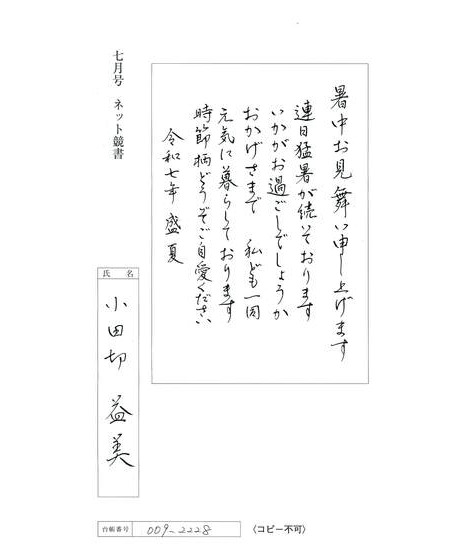 暑中お見舞い申し上げます
連日猛暑が続いております
いかがお過ごしでしょうか
おかげさまで　私ども一同
元気に暮らしております
時節柄どうぞご自愛ください
令和七年 盛夏
七月号　ネット競書
氏名
小田切 益美
台帳番号 009-2228
〈コピー不可〉